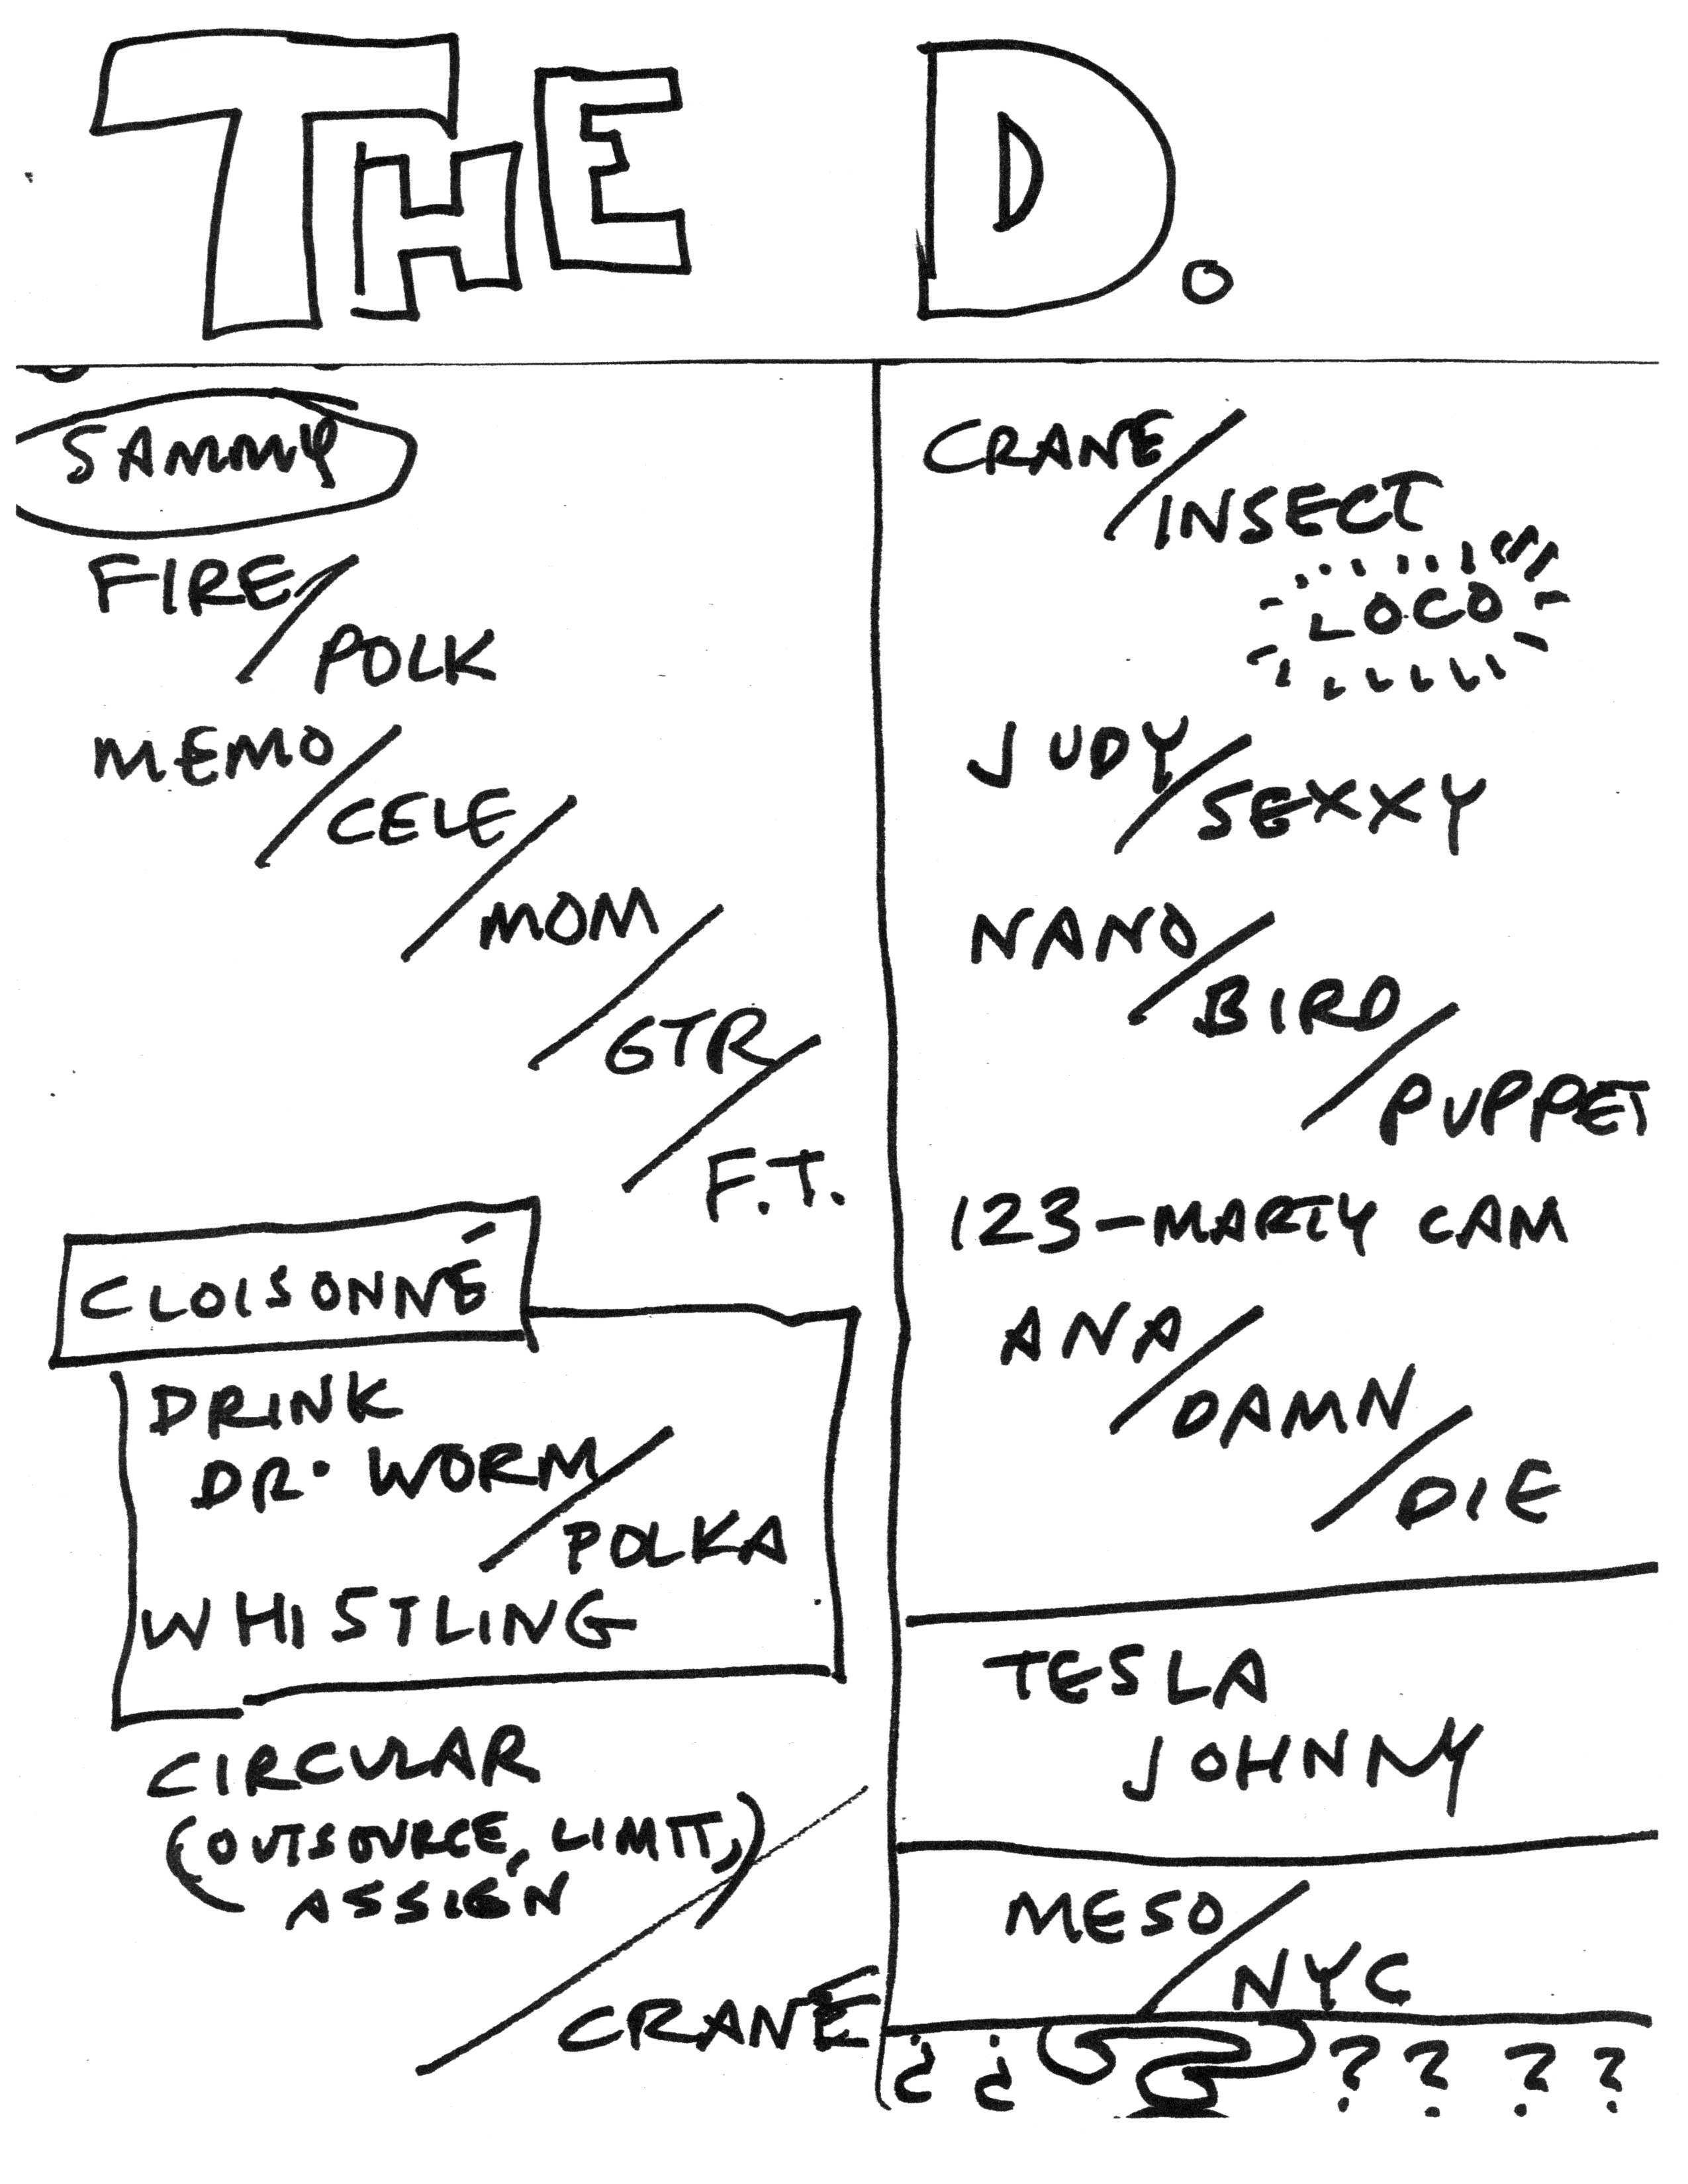 THE D.
SAMMY
FIRE/
POLK
MEMO/
CELE/
MOM/
GTR/
F.T.
CLOISONNÉ
DRINK
DR. WORM/
POLKA
WHISTLING
CIRCULAR
(OUTSOURCE, LIMIT,)
ASSIGN
/CRANE
CRANE/
INSECT
LOCO
JUDY/
SEXXY
NANO/
BIRD/
PUPPET
123-MARTY CAM
ANA/
DAMN/
DIE
TESLA
JOHNNY
MESO/
NYC
¿ ¿ ? ? ? ? ?